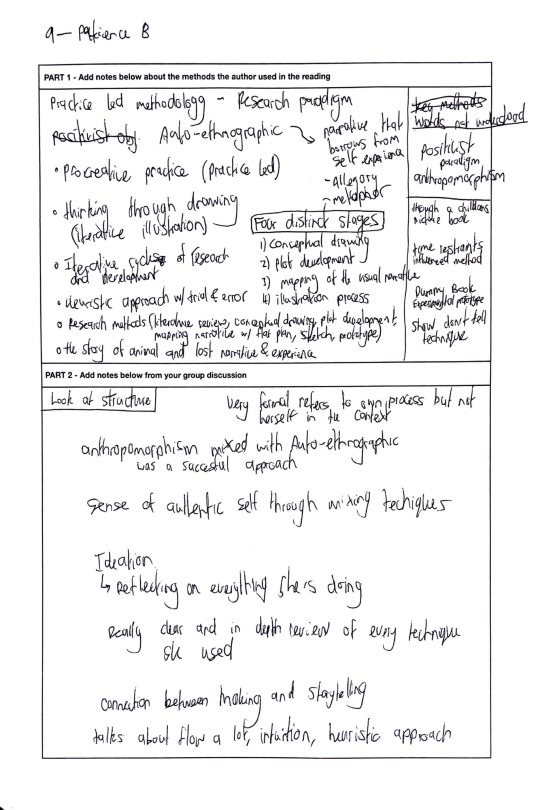 9 - Patience B
PART 1 - Add notes below about the methods the author used in the reading
Practice led methodology - Research paradigm
Positivist obj. Auto-ethnographic → narrative that
borrows from
self experience
- allegory
- metaphor
• Procreative practice (practice led)
• thinking through drawing
(iterative illustration)
• Iterative cycles of research
and development
• Heuristic approach w/ trial & error
Four distinct stages
1) Conceptual drawing
2) Plot development
3) mapping of the visual narrative
4) illustration process
• Research methods (literature review, conceptual drawing, plot development,
mapping narrative w/ flat plan, sketch, prototype)
• the story of animal and lost narrative & experience
Key methods
Words not understood
positivist
paradigm
anthropomorphism
through a childrens
picture book
time restraints
influenced method
Dummy Book
Experimental prototype
show don't tell
technique
PART 2 - Add notes below from your group discussion
Look at structure
Very formal refers to own process but not
herself in the context
anthropomorphism mixed with Auto-ethnographic
was a succesful approach
sense of authentic self through mixing techiques
Ideation
↳ Reflecting on everything she is doing
Really clear and in depth review of every technique
she used
connection between making and storytelling
talks about flow a lot, intuition, heuristic approach